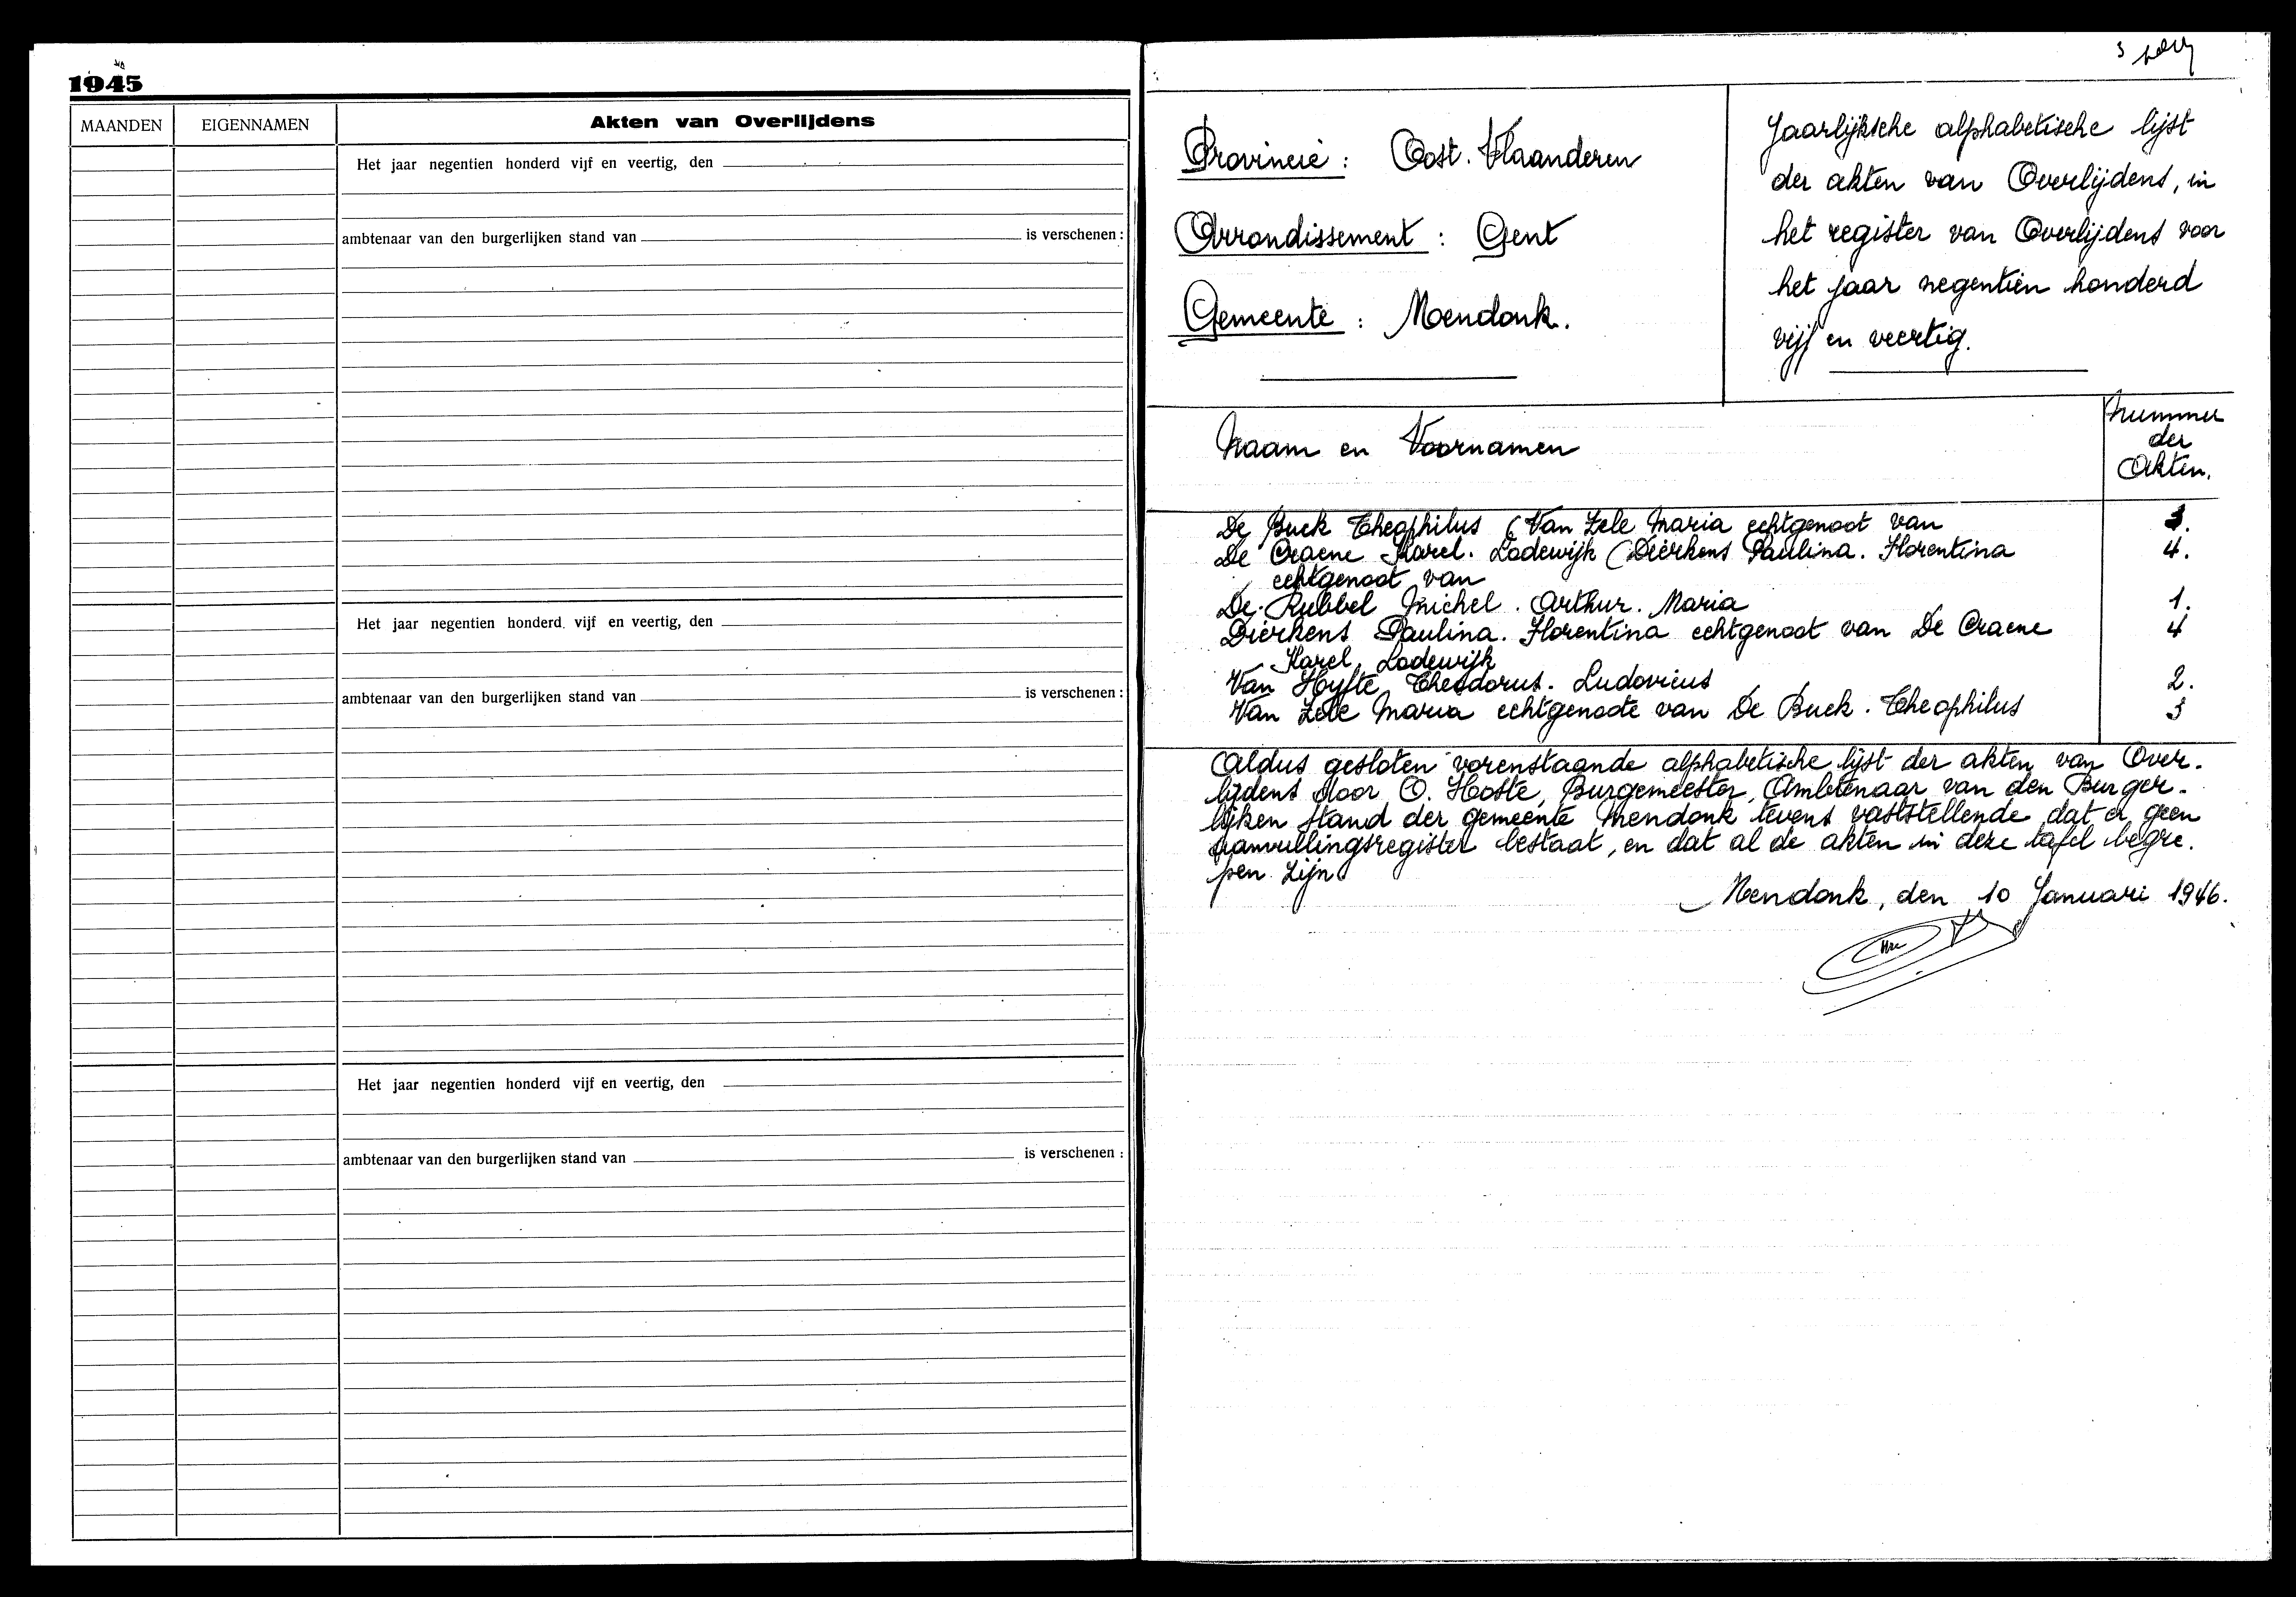 1945
MAANDEN
EIGENNAMEN
Akten van Overlijdens
Het jaar negentien honderd vijf en veertig, den
ambtenaar van den burgerlijken stand van
is verschenen :
Het jaar negentien honderd vijf en veertig, den
ambtenaar van den burgerlijken stand van
is verschenen :
Het jaar negentien honderd vijf en veertig, den
ambtenaar van den burgerlijken stand van
is verschenen :
3
Provincie : Oost. Vlaanderen
Arrondissement : Gent
Gemeente : Mendonk.
Jaarlijksche alphabetische lijst
der akten van Overlijdens, in
het register van Overlijdens voor
het jaar negentien honderd
vijf en veertig.
Naam en Voornamen
Nummer
der
Akten.
De Buck Theophilus (Van Zele Maria echtgenoot van 3.
De Craene Karel. Lodewijk (Dierkens Paulina. Florentina 4.
echtgenoot van
De Rubbel Michel. Arthur. Maria 1.
Dierkens Paulina. Florentina echtgenoot van De Craene 4
Karel, Lodewijk
Van Hyfte Theodorus. Ludovicus 2.
Van Zele Maria echtgenoote van De Buck. Theophilus 3
Aldus gesloten vorenstaande alphabetische lijst der akten van Over-
lijdens door O. Hoste, Burgemeester, Ambtenaar van den Burger-
lijken Stand der gemeente Mendonk tevens vaststellende dat er geen
aanvullingsregister bestaat, en dat al de akten in deze tafel begre-
pen zijn.
Mendonk, den 10 Januari 1946.